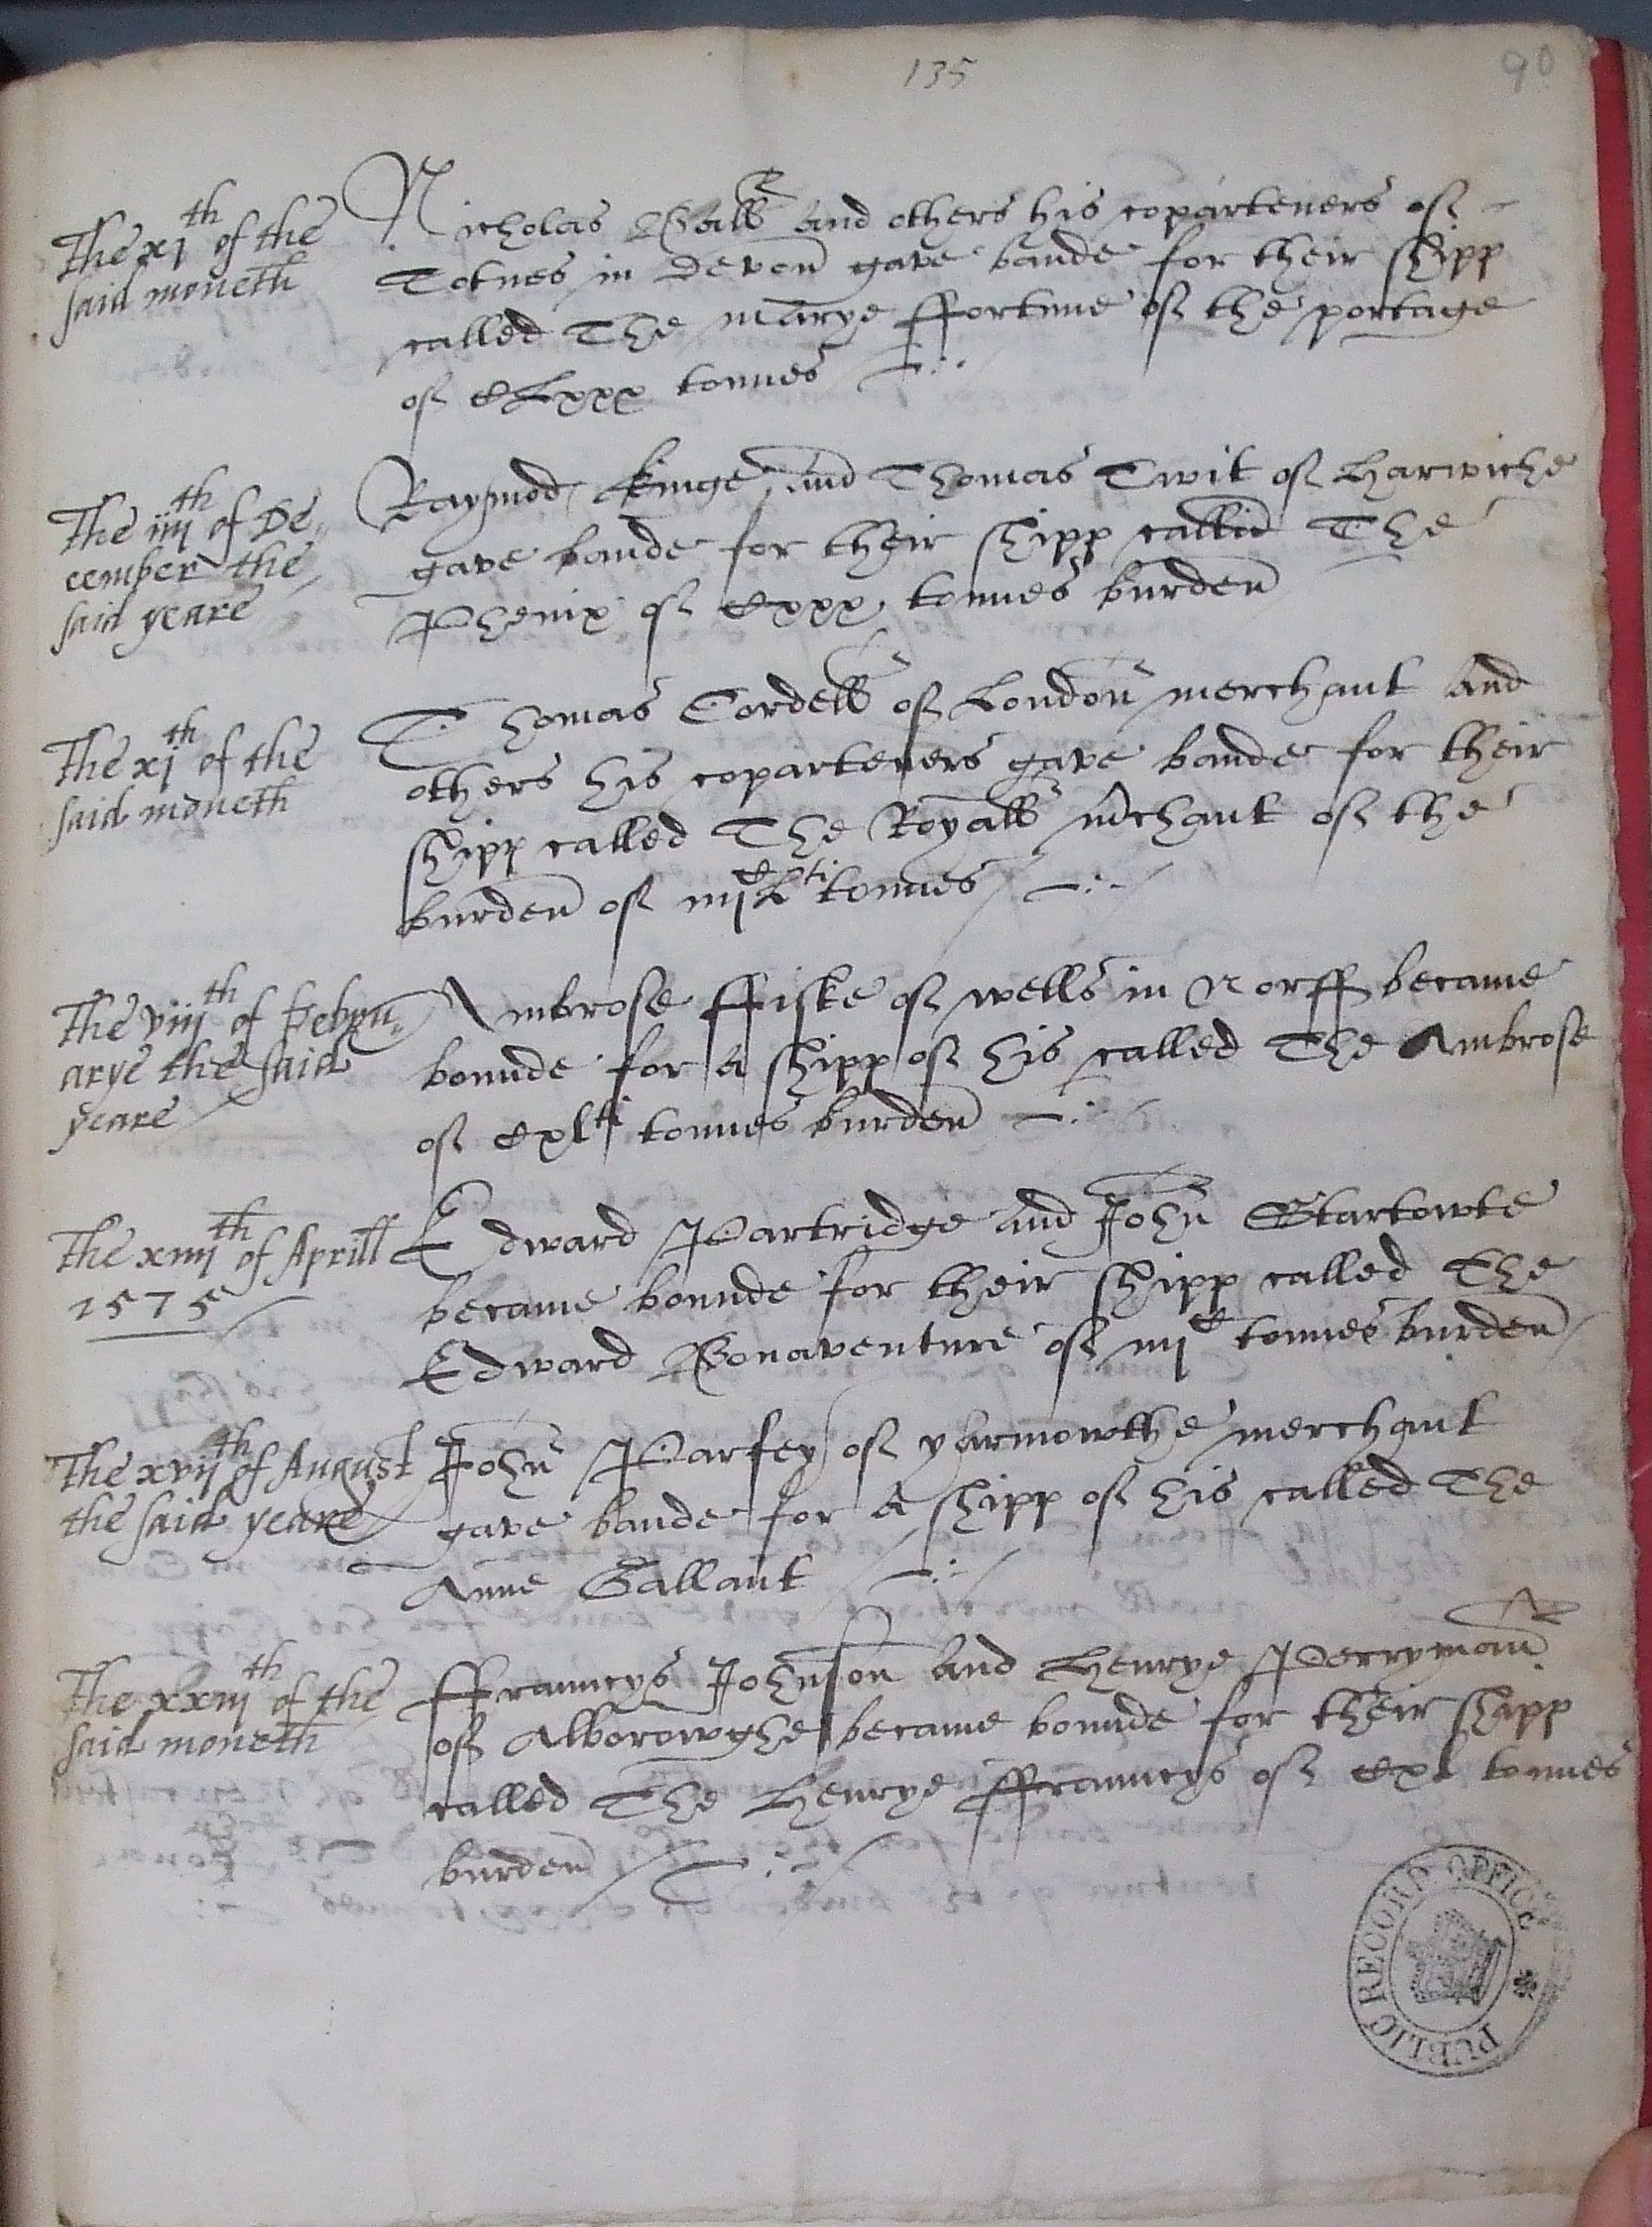 135
90
The xjth of the
said moneth
Nicholas Ball and others his coparteners of
Totnes in Devon gave bande for their shipp
called The Marye ffortune of the portage
of CLxxx tonnes
The iiijth of De=
cember the
said yeare
Raymod Kinge and Thomas Twit of Harwiche
gave bande for their shipp callid The
Phenix of Cxxx tonnes burden
The xjth of the
said moneth
Thomas Cordell of London merchant and
others his coparteners gave bande for their
shipp called The Royall mchant of the
burden of iijC Lti tonnes
The viijth of Febru=
arye the said
yeare
Ambrose ffiske of wells in Norff became
bounde for a shipp of his called The Ambrose
of Cxlti tonnes burden
The xiiijth of Aprill
1575
Edward Partridge and John Startowte
became bounde for their shipp called The
Edward Bonaventure of iijC tonnes burden
The xvijth of August
the said yeare
John Parfey of yarmowthe merchant
gave bande for a shipp of his called The
Anne Gallant
The xxiijth of the
said moneth
ffrauncys Johnson and Henrye Perryman
of Alborowghe became bounde for their shipp
called The Henrye ffrauncys of Cxl tonnes
burden
PUBLIC RECORD OFFICE